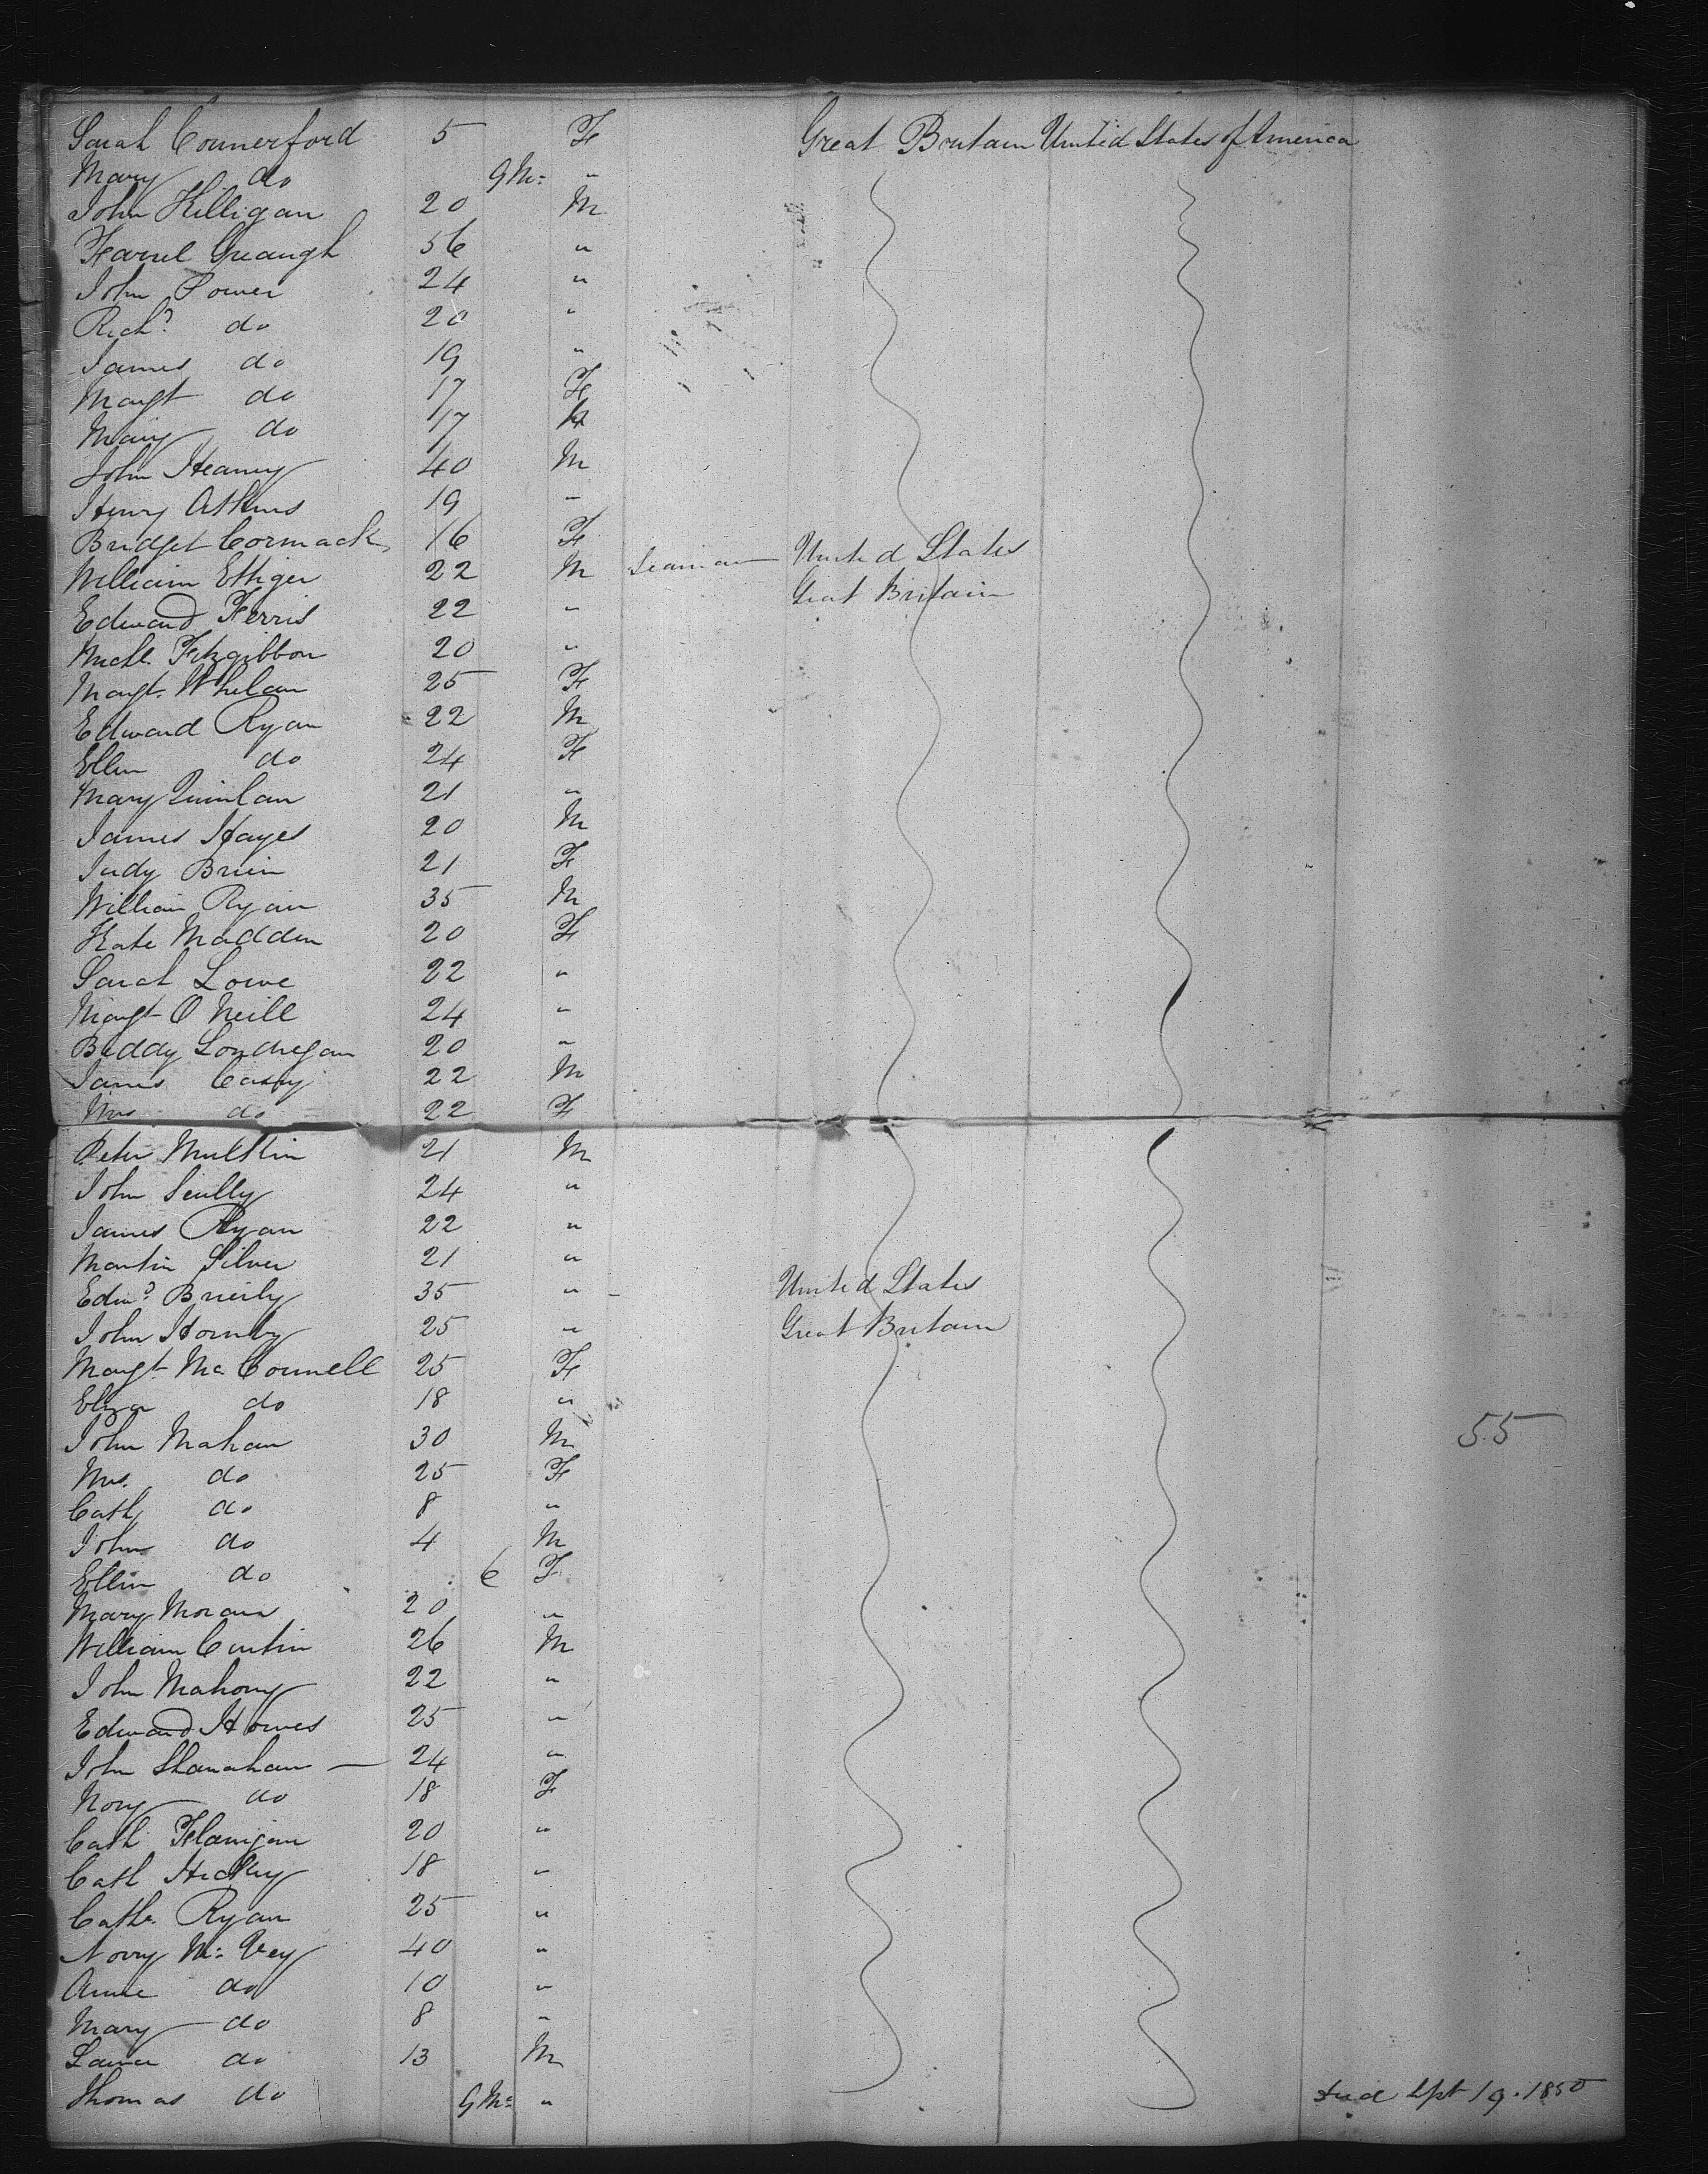 Sarah Connerford 5 F Great Britain United States of America
Mary do 9 Ms "
John Killigan 20 M
Farrel Greaugh 56 "
John Power 24 "
Richd do 20 "
James do 19 "
Margt do 17 F
Mary do 17 F
John Heaney 40 M
Henry Atkins 19 "
Bridget Cormack 16 F
William Ettiger 22 M Seaman United States
Edward Ferris 22 " Great Britain
Michl. Fitzgibbon 20 "
Margt. Whelan 25 F
Edward Ryan 22 M
Ellen do 24 F
Mary Quinlan 21 "
James Hayes 20 M
Judy Brien 21 F
William Ryan 35 M
Kate Madden 20 F
Sarah Lowe 22 "
Margt O Neill 24 "
Biddy Londregan 20 "
James Casey 22 M
Mrs do 22 F
Peter Mulklin 21 M
John Scully 24 "
James Ryan 22 "
Martin Silver 21 "
Edwd Brierly 35 " United States
John Hornby 25 " Great Britain
Margt Mc Connell 25 F
Eliza do 18 "
John Mahan 30 M 55
Mrs. do 25 F
Cath do 8 "
John do 4 M
Ellin do 6 F
Mary Moran 20 "
William Curtin 26 M
John Mahony 22 "
Edward Howes 25 "
John Shanahan 24 "
Nory do 18 F
Cath Flanigan 20 "
Cath Hickey 18 "
Cathe. Ryan 25 "
Norry Mc Vey 40 "
Anne do 10 "
Mary do 8 "
do 13 M
Thomas do 9 Ms " died Spt 19. 1850